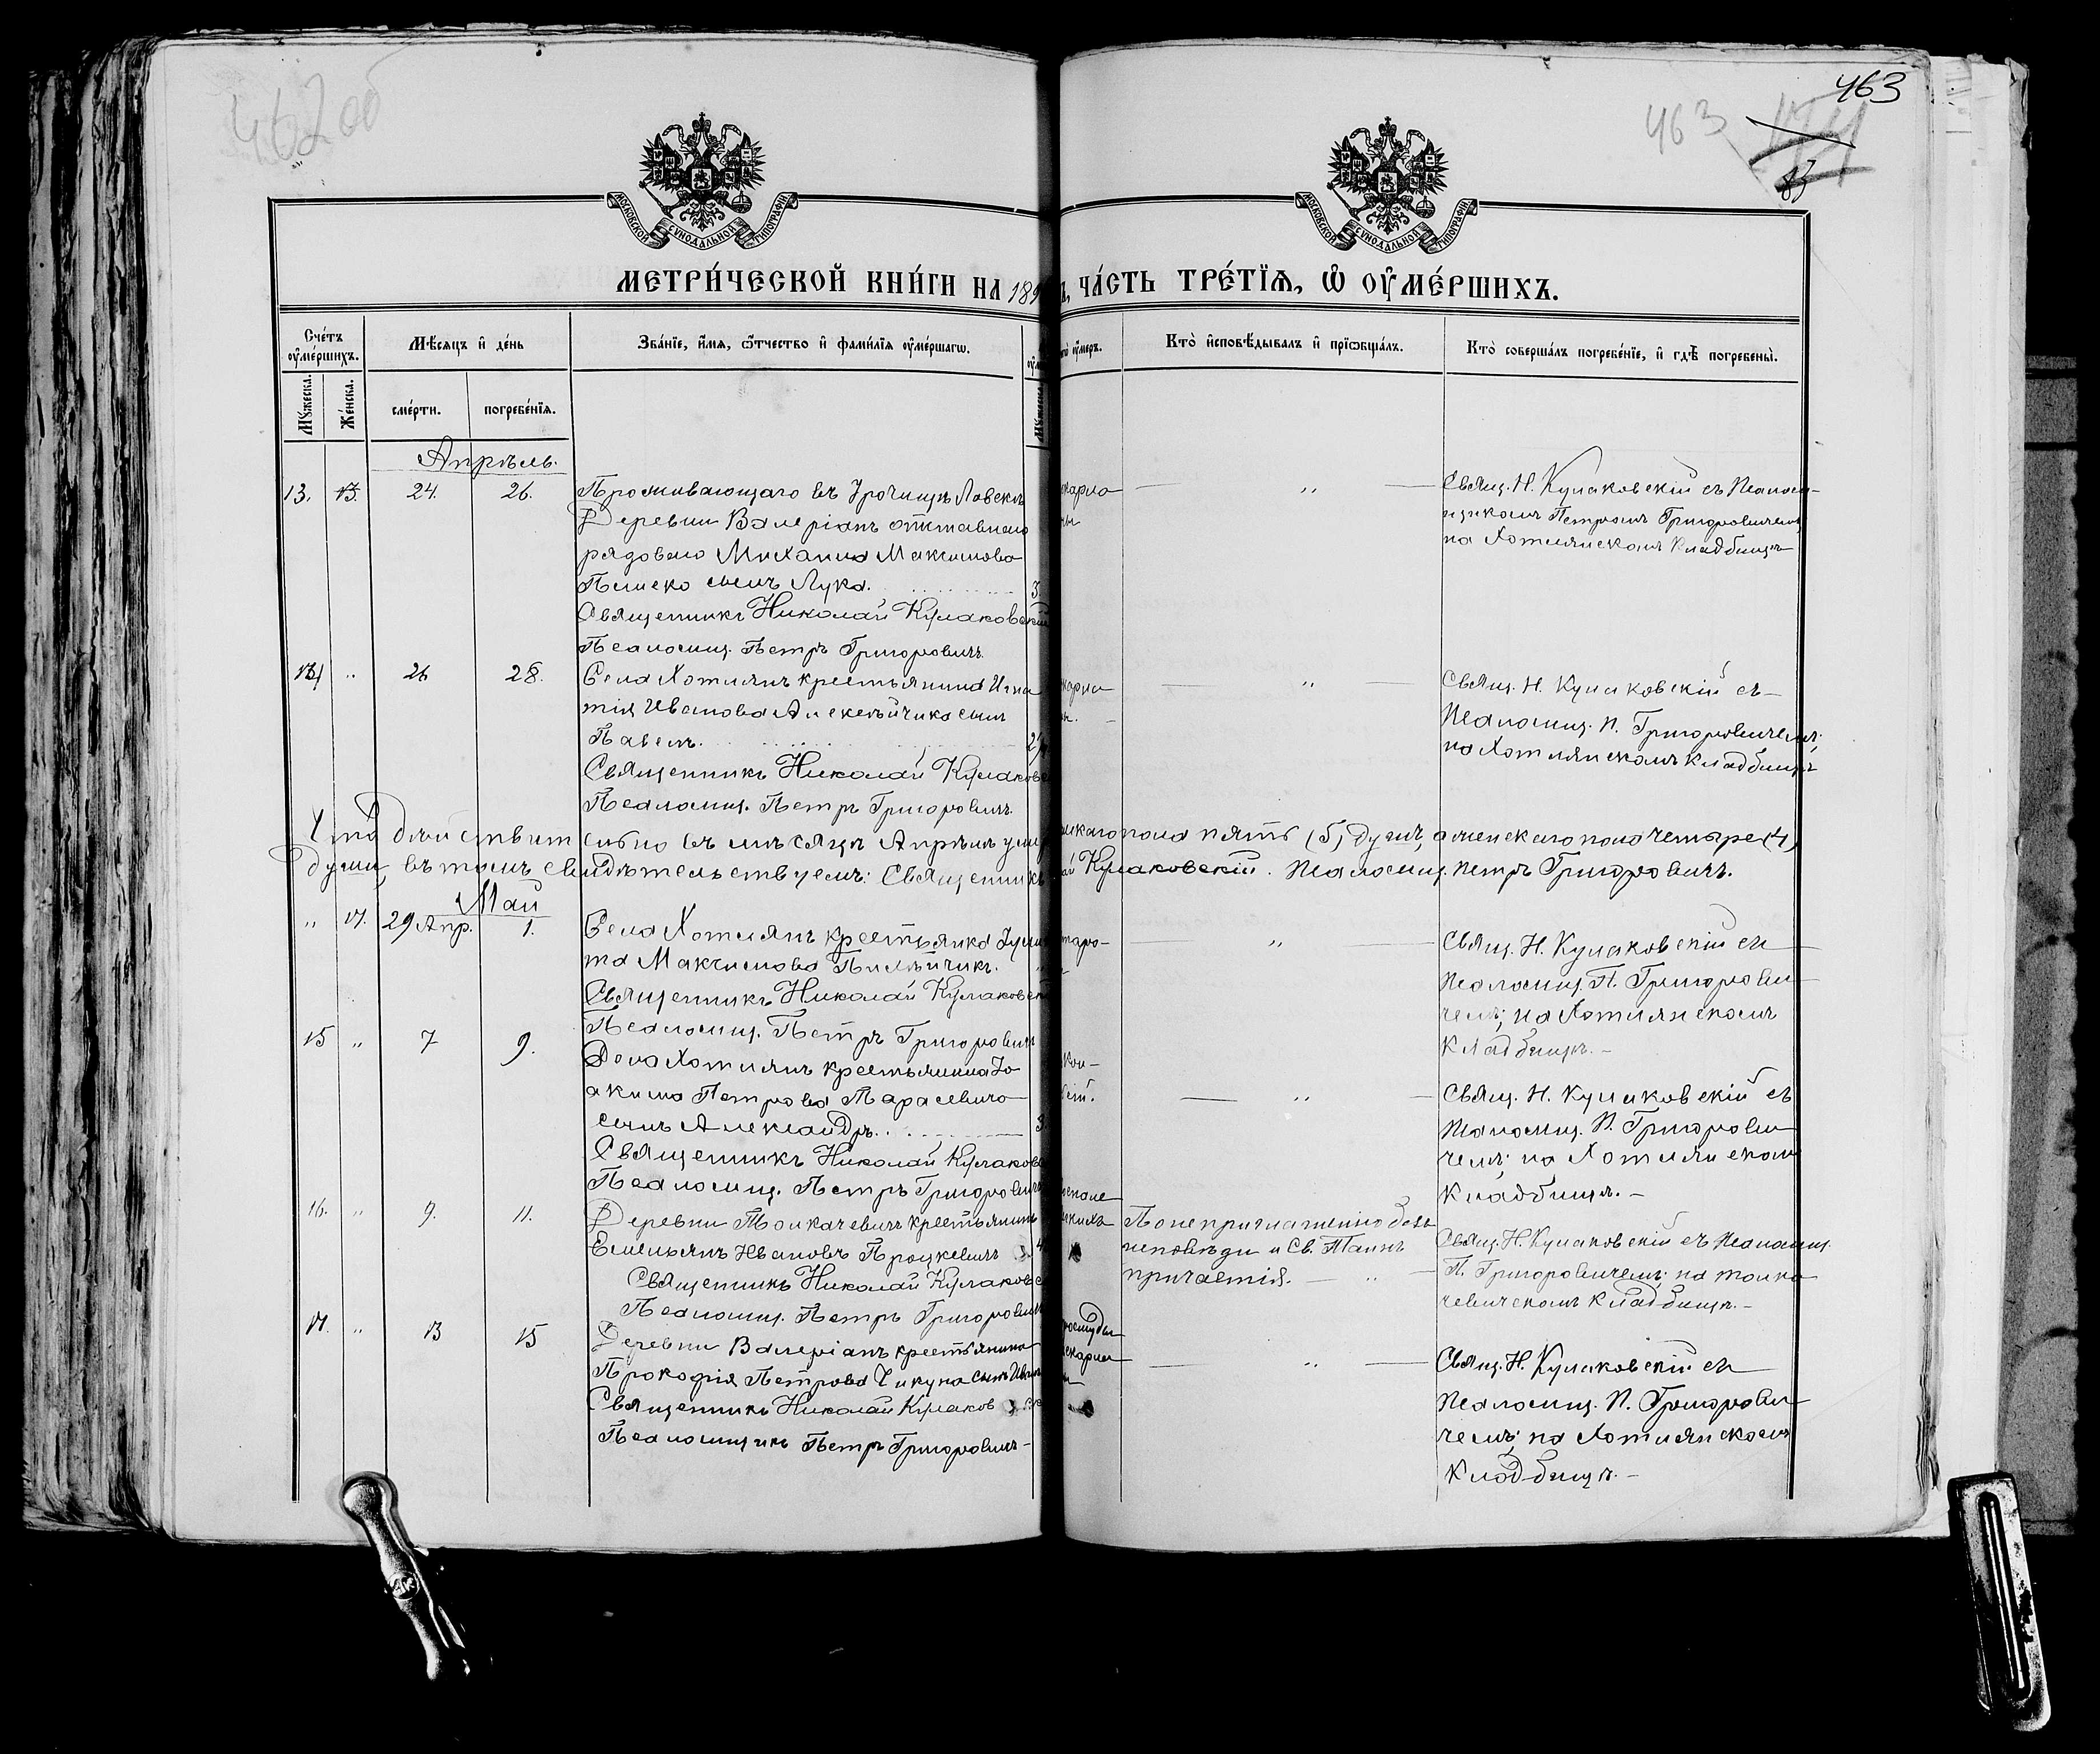 462 об
463
463
83
МОСКОВСКОЙ СѴНОДАЛЬНОЙ ТИПОГРАФІИ
МОСКОВСКОЙ СѴНОДАЛЬНОЙ ТИПОГРАФІИ
МЕТРИ́ЧЕСКОЙ КНИ́ГИ НА 189
ЧА́СТЬ ТРЕ́ТЇѦ, Ѽ ОУ҆МЕ́РШИХЪ.
Сче́тъ оу҆ме́ршихъ.
Мѣ́сѧцъ и҆ де́нь
Зва́нїе, и҆́мѧ, ѻ҆́тчество и҆ фами́лїѧ оу҆ме́ршагѡ.
оу҆ме́ръ.
Кто̀ и҆сповѣ́дывалъ и҆ прїѡбща́лъ.
Кто̀ соверша́лъ погребе́нїе, и҆ гдѣ̀ погребены̀.
Мꙋ́жеска.
Же́нска.
сме́рти.
погребе́нїѧ.
Апрѣль.
13. 13. 24. 26. Проживающаго въ Урочищѣ
Деревни Валеріанъ отставнаго
рядоваго Михаила Максимова
сынъ Лука. 3
Священникъ Николай Кулаковскій
Псаломщ. Петръ Григоровичъ.
Свящ. Н. Кулаковскій съ Псалом-
щикомъ Петромъ Григоровичемъ
на Хотлянскомъ кладбищѣ
14 „ 26 28. Села Хотлянъ крестьянина Игна
тія Иванова Алексѣйчика сынъ
Павелъ.
Священникъ Николай Кулаковс
Псаломщ. Петръ Григоровичъ.
Свящ. Н. Кулаковскій съ
Псаломщ. П. Григоровичемъ;
на Хотлянскомъ кладбищѣ
Что дѣйствительно въ мѣсяцѣ Апрѣлѣ ум
жескаго пола пять (5) душъ, а женскаго пола четыре (4)
души, въ томъ свидѣтельствуемъ: Священникъ
Кулаковскій. Псаломщ. Петръ Григоровичъ.
Май
„ 14. 29 Апр. 1. Села Хотлянъ крестьянка
та Максимова
Священникъ Николай Кулаковск
Псаломщ. Петръ Григоровичъ
старо-
Свящ. Н. Кулаковскій съ
Псаломщ. П. Григорови
чемъ; на Хотлянскомъ
кладбищѣ. –
15 „ 7 9. Села Хотлянъ крестьянина Іо
акима Петрова Тарасевича
сынъ Александръ. 3
Священникъ Николай Кулаковс
Псаломщ. Петръ Григорович
Свящ. Н. Кулаковскій съ
Псаломщ. П. Григорови
чемъ; на Хотлянском
кладбищѣ. –
16. „ 9. 11. Деревни Толкачевичъ крестьянинъ
Емельянъ Ивановъ Процкевичъ
Священникъ Николай Кулаковс
Псаломщ. Петръ Григорович
По неприглашенію безъ
исповѣди и Св. Таинъ
причастія. – „ –
Свящ. Н. Кулаковскій съ Псаломщ.
П. Григоровичемъ; на Толка
чевичскомъ кладбищѣ. –
17. „ 13 15 Деревни Валеріанъ крестьянина
Прокофія Петрова Чикуна сынъ
Священникъ Николай Кулаков
Псаломщикъ Петръ Григоровичъ –
простуды
Свящ. Н. Кулаковскій съ
Псаломщ. П. Григорови
чемъ; на Хотлянскомъ
кладбищѣ. –